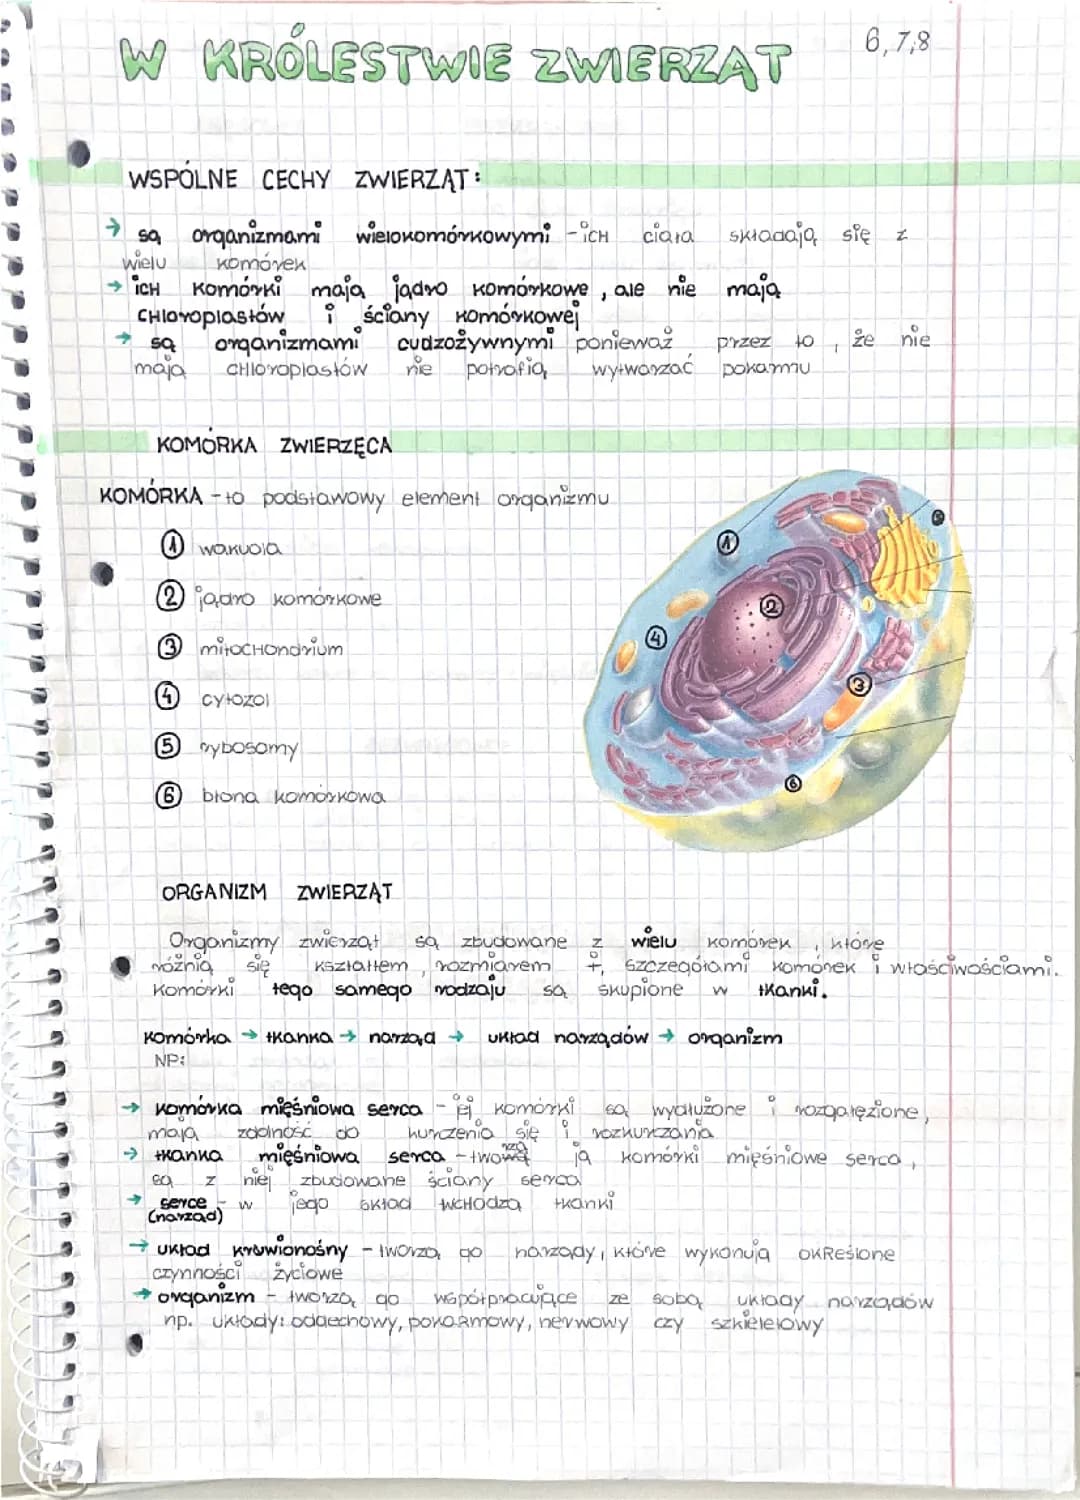 W KRÓLESTWIE ZWIERZĄT
6,7,8
WSPÓLNE CECHY ZWIERZĄT:
→ są organizmami wielokomórkowymi - ich ciała składają się z
wielu komórek
→ ich komórki mają jądro komórkowe, ale nie mają
chloroplastów i ściany komórkowej
→ są organizmami cudzożywnymi ponieważ przez to, że nie
mają chloroplastów nie potrafią wytwarzać pokarmu
KOMÓRKA ZWIERZĘCA
KOMÓRKA - to podstawowy element organizmu
① wakuola
② jądro komórkowe
③ mitochondrium
④ cytozol
⑤ rybosomy
⑥ błona komórkowa
① ② ③ ④ ⑤ ⑥
ORGANIZM ZWIERZĄT
Organizmy zwierząt są zbudowane z wielu komórek, które
różnią się kształtem, rozmiarem +, szczegółami komórek i właściwościami.
Komórki tego samego rodzaju są skupione w tkanki.
Komórka → tkanka → narząd → układ narządów → organizm
NP:
→ komórka mięśniowa serca - jej komórki są wydłużone i rozgałęzione,
mają zdolność do kurczenia się i rozkurczania
→ tkanka mięśniowa serca - tworzą ją komórki mięśniowe serca,
są z niej zbudowane ściany serca
→ serce - w jego skład wchodzą tkanki
(narząd)
→ układ krwionośny - tworzą go narządy, które wykonują określone
czynności życiowe
→ organizm - tworzą go współpracujące ze sobą układy narządów
np. układy: oddechowy, pokarmowy, nerwowy czy szkieletowy